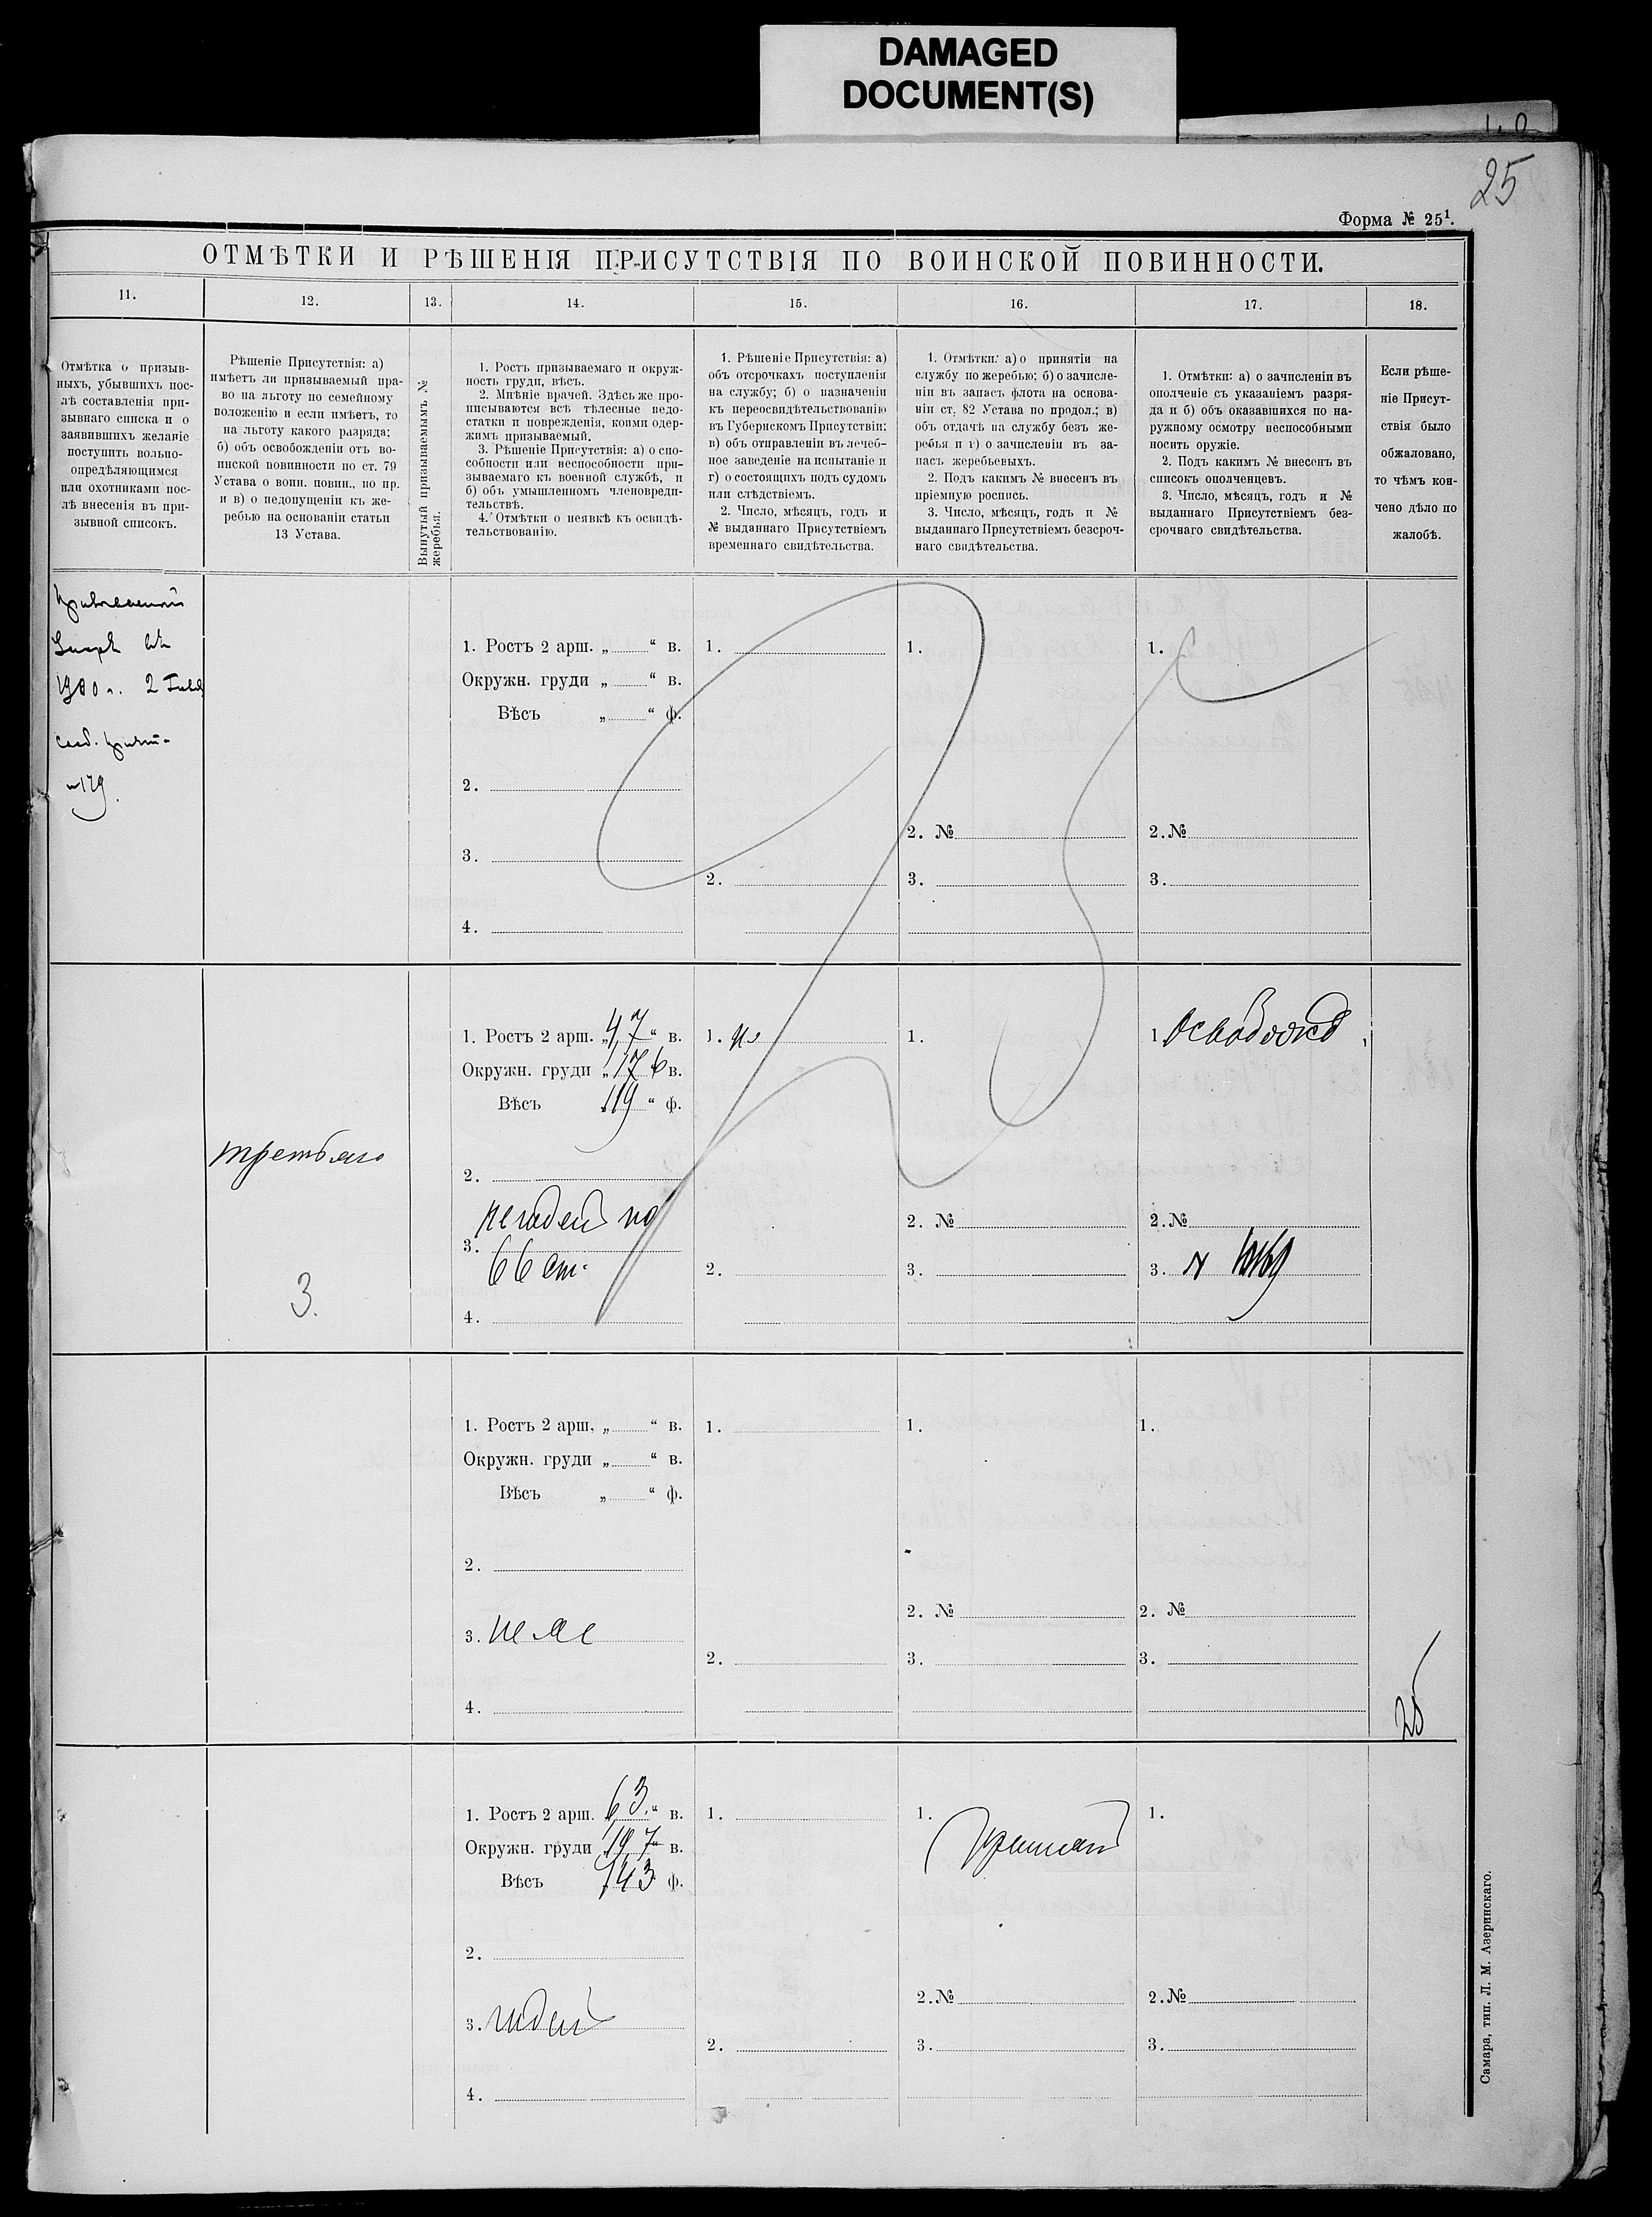 DAMAGED
DOCUMENT(S)
25
Форма № 25¹.
ОТМѢТКИ И РѢШЕНІЯ ПРИСУТСТВІЯ ПО ВОИНСКОЙ ПОВИННОСТИ.
11.
12.
13.
14.
15.
16.
17.
18.
Отмѣтка о призыв-
ныхъ, убывшихъ пос-
лѣ составленія при-
зывнаго списка и о
заявившихъ желаніе
поступить вольно-
опредѣляющимся
или охотниками пос-
лѣ внесенія въ при-
зывной списокъ.
Рѣшеніе Присутствія: а)
имѣетъ ли призываемый пра-
во на льготу по семейному
положенію и если имѣетъ, то
на льготу какого разряда;
б) объ освобожденіи отъ во-
инской повинности по ст. 79
Устава о воин. повин., по пр.
и в) о недопущеніи къ же-
ребью на основаніи статьи
13 Устава.
Вынутый призываемымъ №
жеребья.
1. Ростъ призываемаго и окруж-
ность груди, вѣсъ.
2. Мнѣніе врачей. Здѣсь же про-
писываются всѣ тѣлесные недо-
статки и поврежденія, коими одер-
жимъ призываемый.
3. Рѣшеніе Присутствія: а) о спо-
собности или неспособности при-
зываемаго къ военной службѣ, и
б) объ умышленномъ членовреди-
тельствѣ.
4. Отмѣтки о неявкѣ къ освидѣ-
тельствованію.
1. Рѣшеніе Присутствія: а)
объ отсрочкахъ поступленія
на службу; б) о назначеніи
къ переосвидѣтельствованію
въ Губернскомъ Присутствіи;
в) объ отправленіи въ лечеб-
ное заведеніе на испытаніе и
г) о состоящихъ подъ судомъ
или слѣдствіемъ.
2. Число, мѣсяцъ, годъ и
№ выданнаго Присутствіемъ
временнаго свидѣтельства.
1. Отмѣтки: а) о принятіи на
службу по жеребью; б) о зачисле-
ніи въ запасъ флота на основа-
ніи ст. 82 Устава по продол.; в)
объ отдачѣ на службу безъ же-
ребья и г) о зачисленіи въ за-
пасъ жеребьевыхъ.
2. Подъ какимъ № внесенъ въ
пріемную роспись.
3. Число, мѣсяцъ, годъ и №
выданнаго Присутствіемъ безсроч-
наго свидѣтельства.
1. Отмѣтки: а) о зачисленіи въ
ополченіе съ указаніемъ разря-
да и б) объ оказавшихся по на-
ружному осмотру неспособными
носить оружіе.
2. Подъ какимъ № внесенъ въ
списокъ ополченцевъ.
3. Число, мѣсяцъ, годъ и №
выданнаго Присутствіемъ без-
срочнаго свидѣтельства.
Если рѣше-
ніе Присут-
ствія было
обжаловано,
то чѣмъ кон-
чено дѣло по
жалобѣ.
1. Ростъ 2 арш. „ “ в.
Окружн. груди „ “ в.
Вѣсъ „ “ ф.
2.
3.
4.
1.
2.
1.
2. №
3.
1.
2. №
3.
третьяго
3.
1. Ростъ 2 арш. „4,7“ в.
Окружн. груди „17 6 в.
Вѣсъ „119 “ ф.
2.
негоденъ по
3.
66 ст.
4.
1.
2.
1.
2. №
3.
1. Освобожд
2. №
3. №
1. Ростъ 2 арш. „ “ в.
Окружн. груди „ “ в.
Вѣсъ „ “ ф.
2.
3.
4.
1.
2.
1.
2. №
3.
1.
2. №
3.
25
1. Ростъ 2 арш. 6 3.“ в.
Окружн. груди 19 7“ в.
Вѣсъ 143 ф.
2.
3. годенъ
4.
1.
2.
1. Принятъ
2. №
3.
1.
2. №
3.
Самара, тип. Л. М. Азеринскаго.